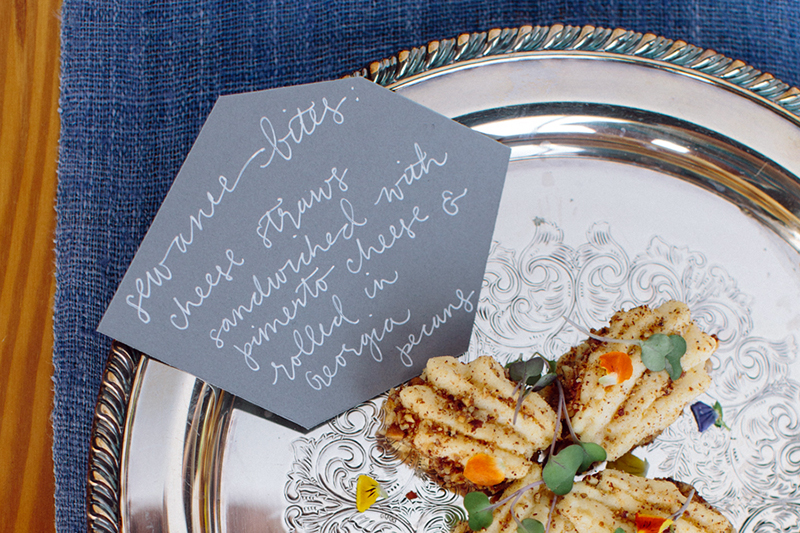 sewanee bites:
cheese straws
sandwiched with
pimento cheese &
rolled in
georgia
pecans